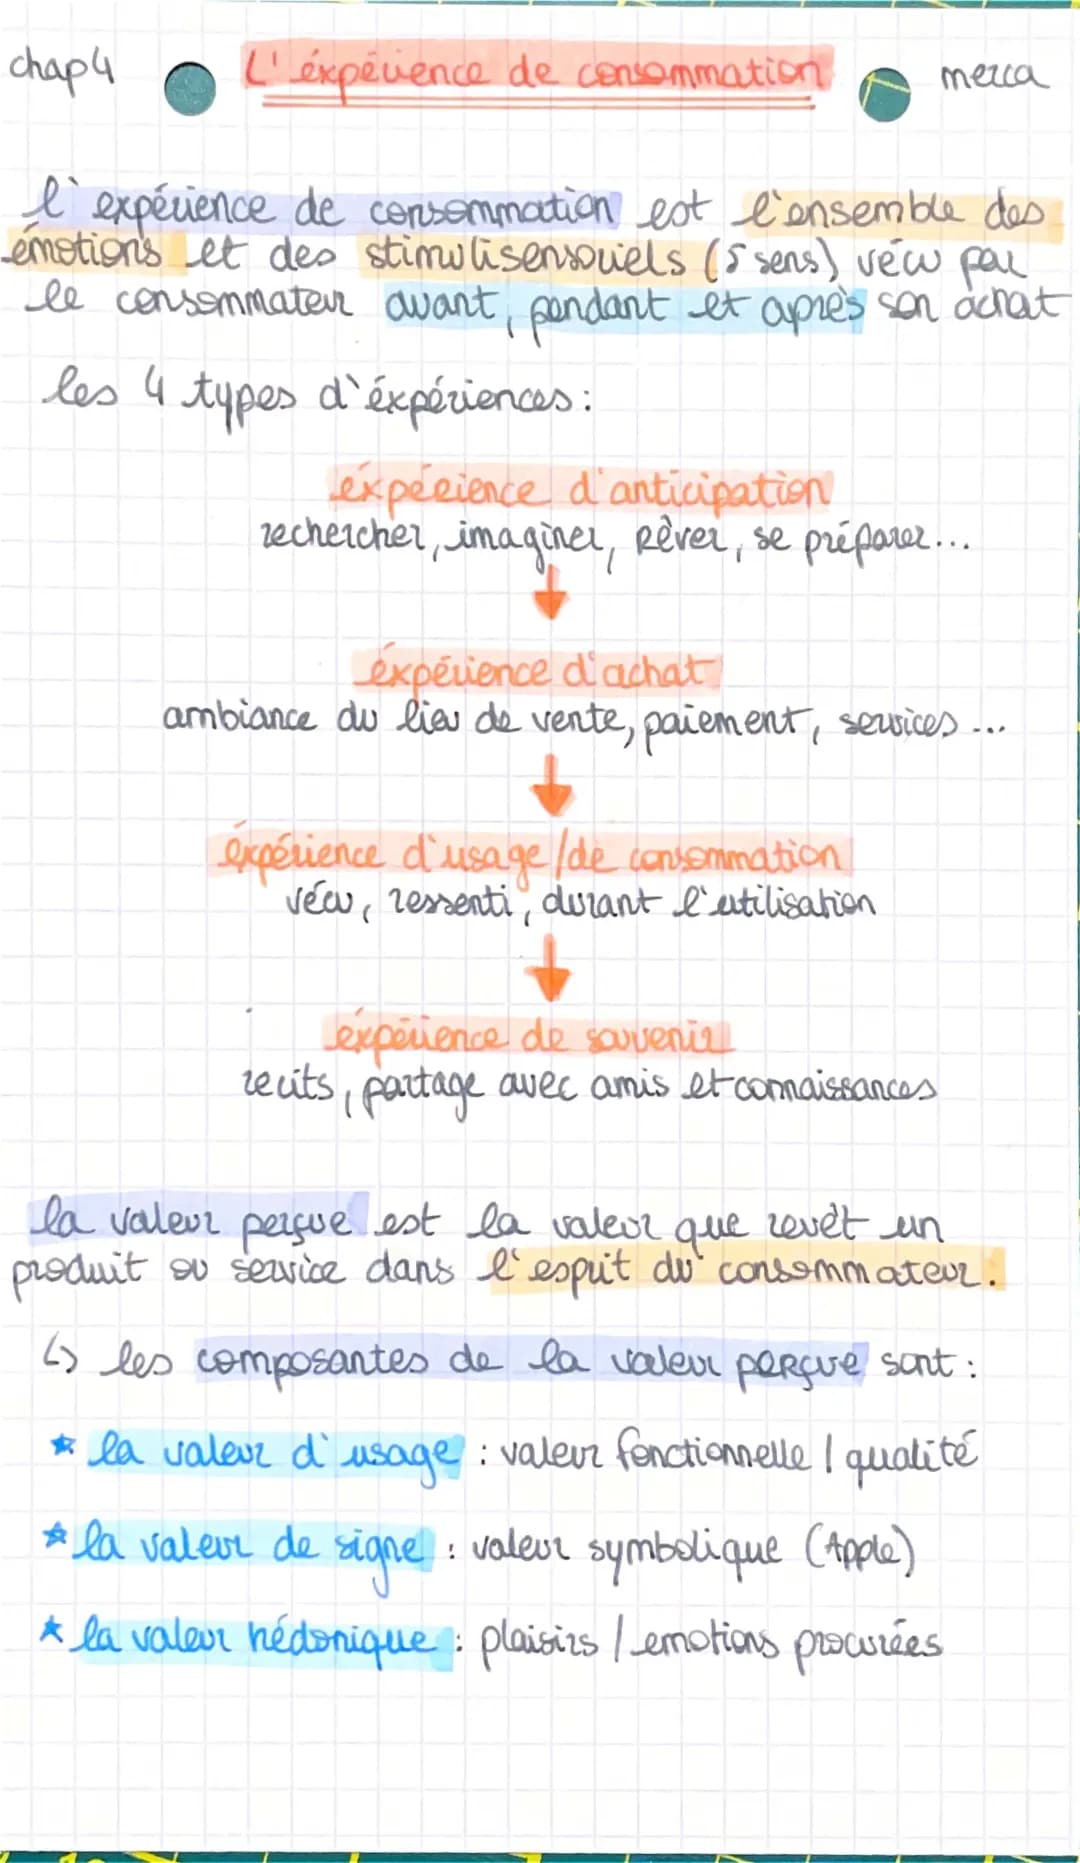 chap4 L'éxpérience de consommation merca
l'expérience de consommation est l'ensemble des
émotions et des stimulisensoriels (5 sens) vécu par
le consommateur avant, pendant et après son achat
les 4 types d'éxpériences :
éxpérience d'anticipation
rechercher, imaginer, Rêver, se préparer...
éxpérience d'achat
ambiance du lieu de vente, paiement, services ...
éxpérience d'usage / de consommation
vécu, ressenti, durant l'utilisation
éxpérience de souvenir
recits, partage avec amis et connaissances
la valeur perçue est la valeur que revêt un
produit ou service dans l'esprit du consommateur.
↳ les composantes de la valeur perçue sont :
★ la valeur d'usage : valeur fonctionnelle / qualité
★ la valeur de signe : valeur symbolique (Apple)
★ la valeur hédonique : plaisirs / emotions procurées